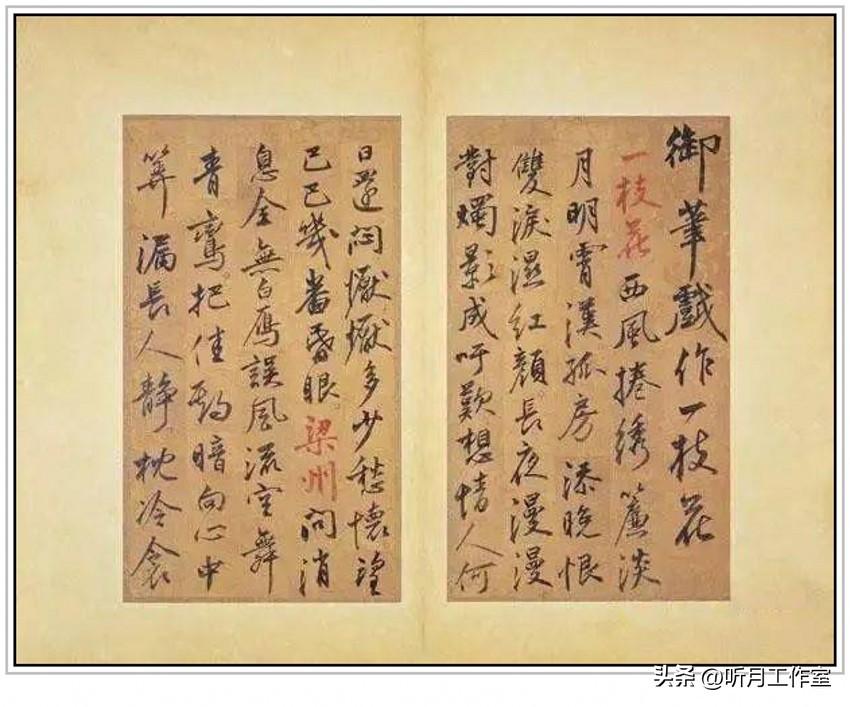 御筆戲作一枝花
一枝花西風捲綉簾淡
月明霄漢孤房添晚恨
雙淚濕紅顏長夜漫漫
對燭影成吁歎想情人何
日還悶懨懨多少愁懷望
巴巴幾番昏眼梁州問消
息全無白雁誤風流空舞
青鸞把佳期暗向心中
筭漏長人静枕冷衾
头条 @听月工作室